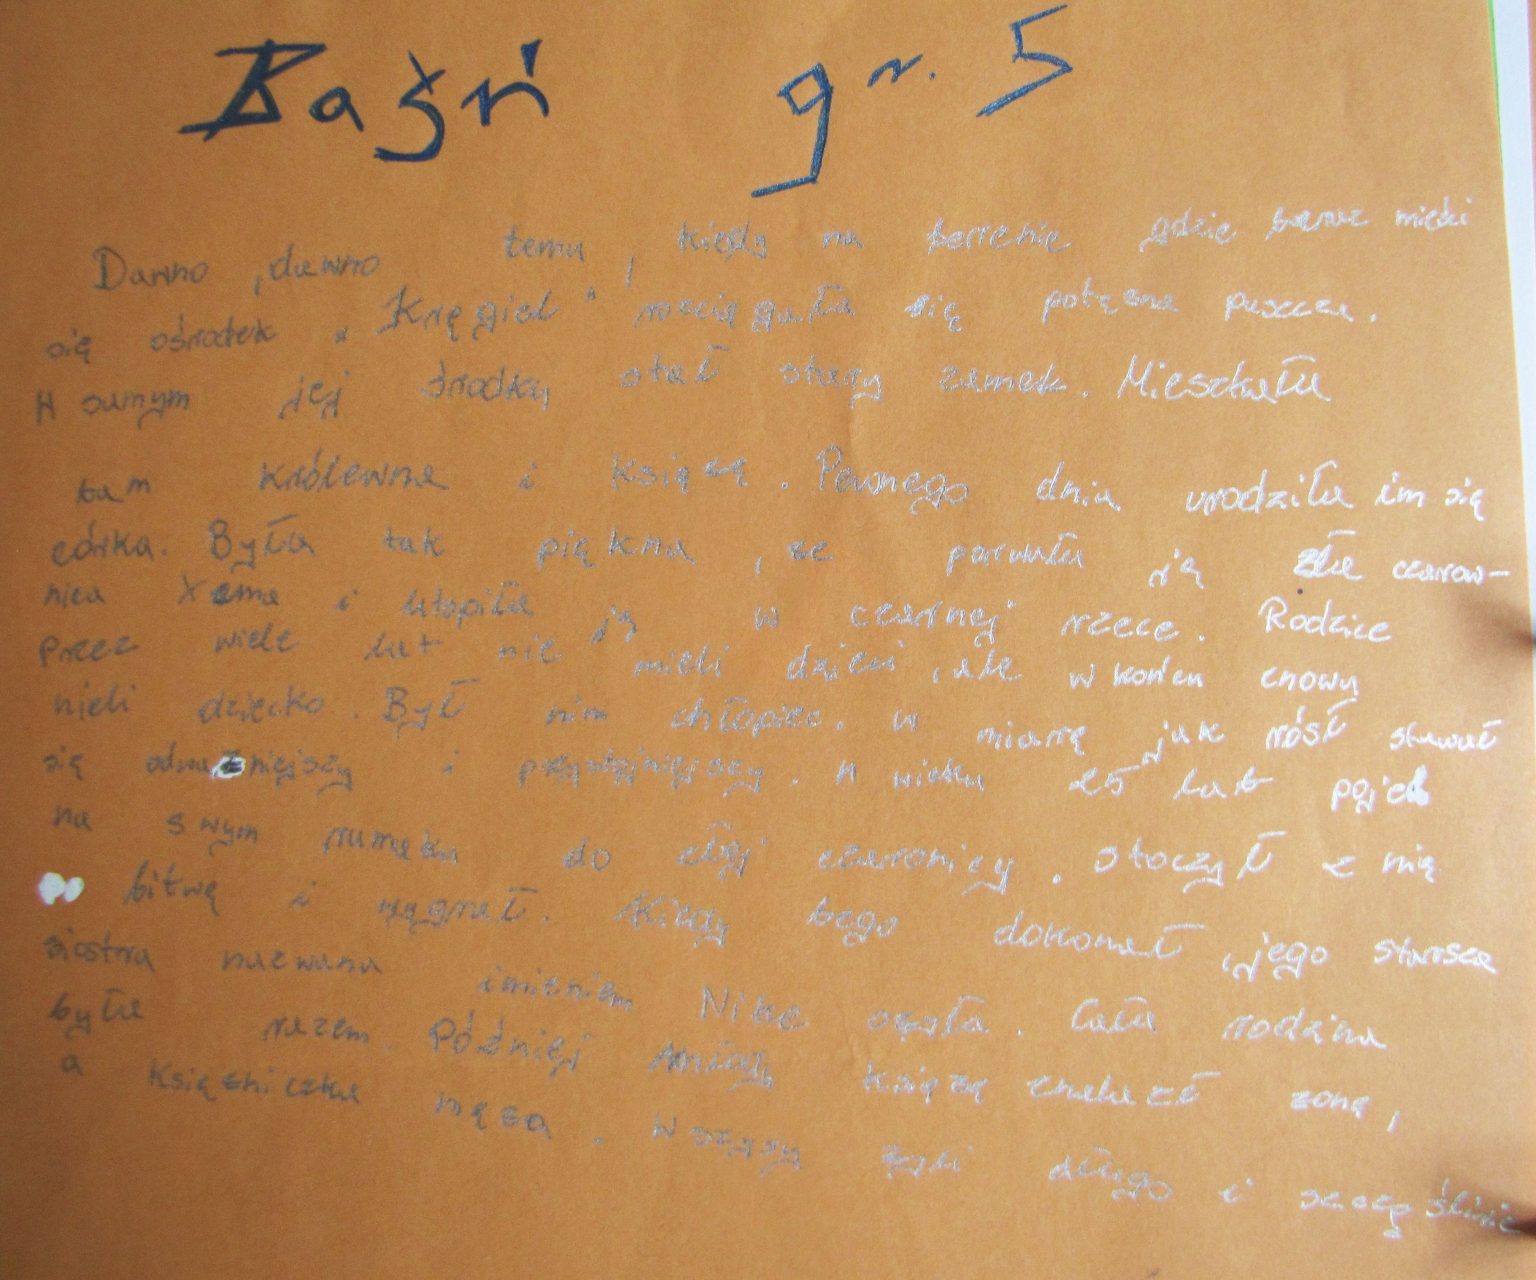 Baśń gr. 5
Dawno, dawno temu, kiedy na terenie gdzie teraz mieści
się ośrodek „Kręgiel" rozciągała się potężna puszcza.
W samym jej środku stał stary zamek. Mieszkała
tam królewna i książę. Pewnego dnia urodziła im się
córka. Była tak piękna, że porwała ją zła czarow-
nica Xema i utopiła ją w czarnej rzece. Rodzice
przez wiele lat nie mieli dzieci, ale w końcu znowu
mieli dziecko. Był nim chłopiec. W miarę jak rósł stawał
się odważniejszy i przystojniejszy. W wieku 25 lat
na swym rumaku do złej czarownicy. Stoczył z nią
bitwę i wygrał. Kiedy tego dokonał, jego starsza
siostra nazwana imieniem Nike ożyła. Cała rodzina
była razem. Później młody książę znalazł żonę,
a księżniczka męża. Wszyscy żyli długo i szczęśliwie